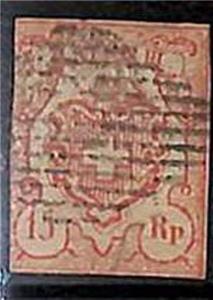 15 Rp